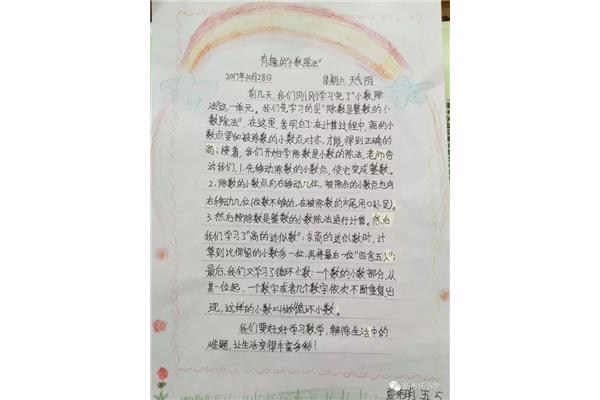 有趣的"小数除法"
2017年10月28日 星期六 天气阴
前几天,我们刚刚学习完了"小数除
法"这一单元。我们先学习的是"除数是整数的小
数除法",在这里,我明白了:在计算过程中,商的小
数点要和被除数的小数点对齐,才能得到正确的
商;接着,我们开始学除数是小数的除法,老师告
诉我们,1.先移动除数的小数点,使它变成整数。
2.除数的小数点向右移动几位,被除数的小数点也向
右移动几位(位数不够的,在被除数的末尾用0补足)。
3.然后按除数是整数的小数除法进行计算。然后
我们学习了"商的近似数":求商的近似数时,计
算到比保留的小数多一位,再将最后一位"四舍五入";
最后,我们又学习了循环小数:一个数的小数部分,从
某一位起,一个数字或者几个数字依次不断重复出
现,这样的小数叫做循环小数。
我们要好好学习数学,解除生活中的
难题,让生活变得丰富多彩!
五